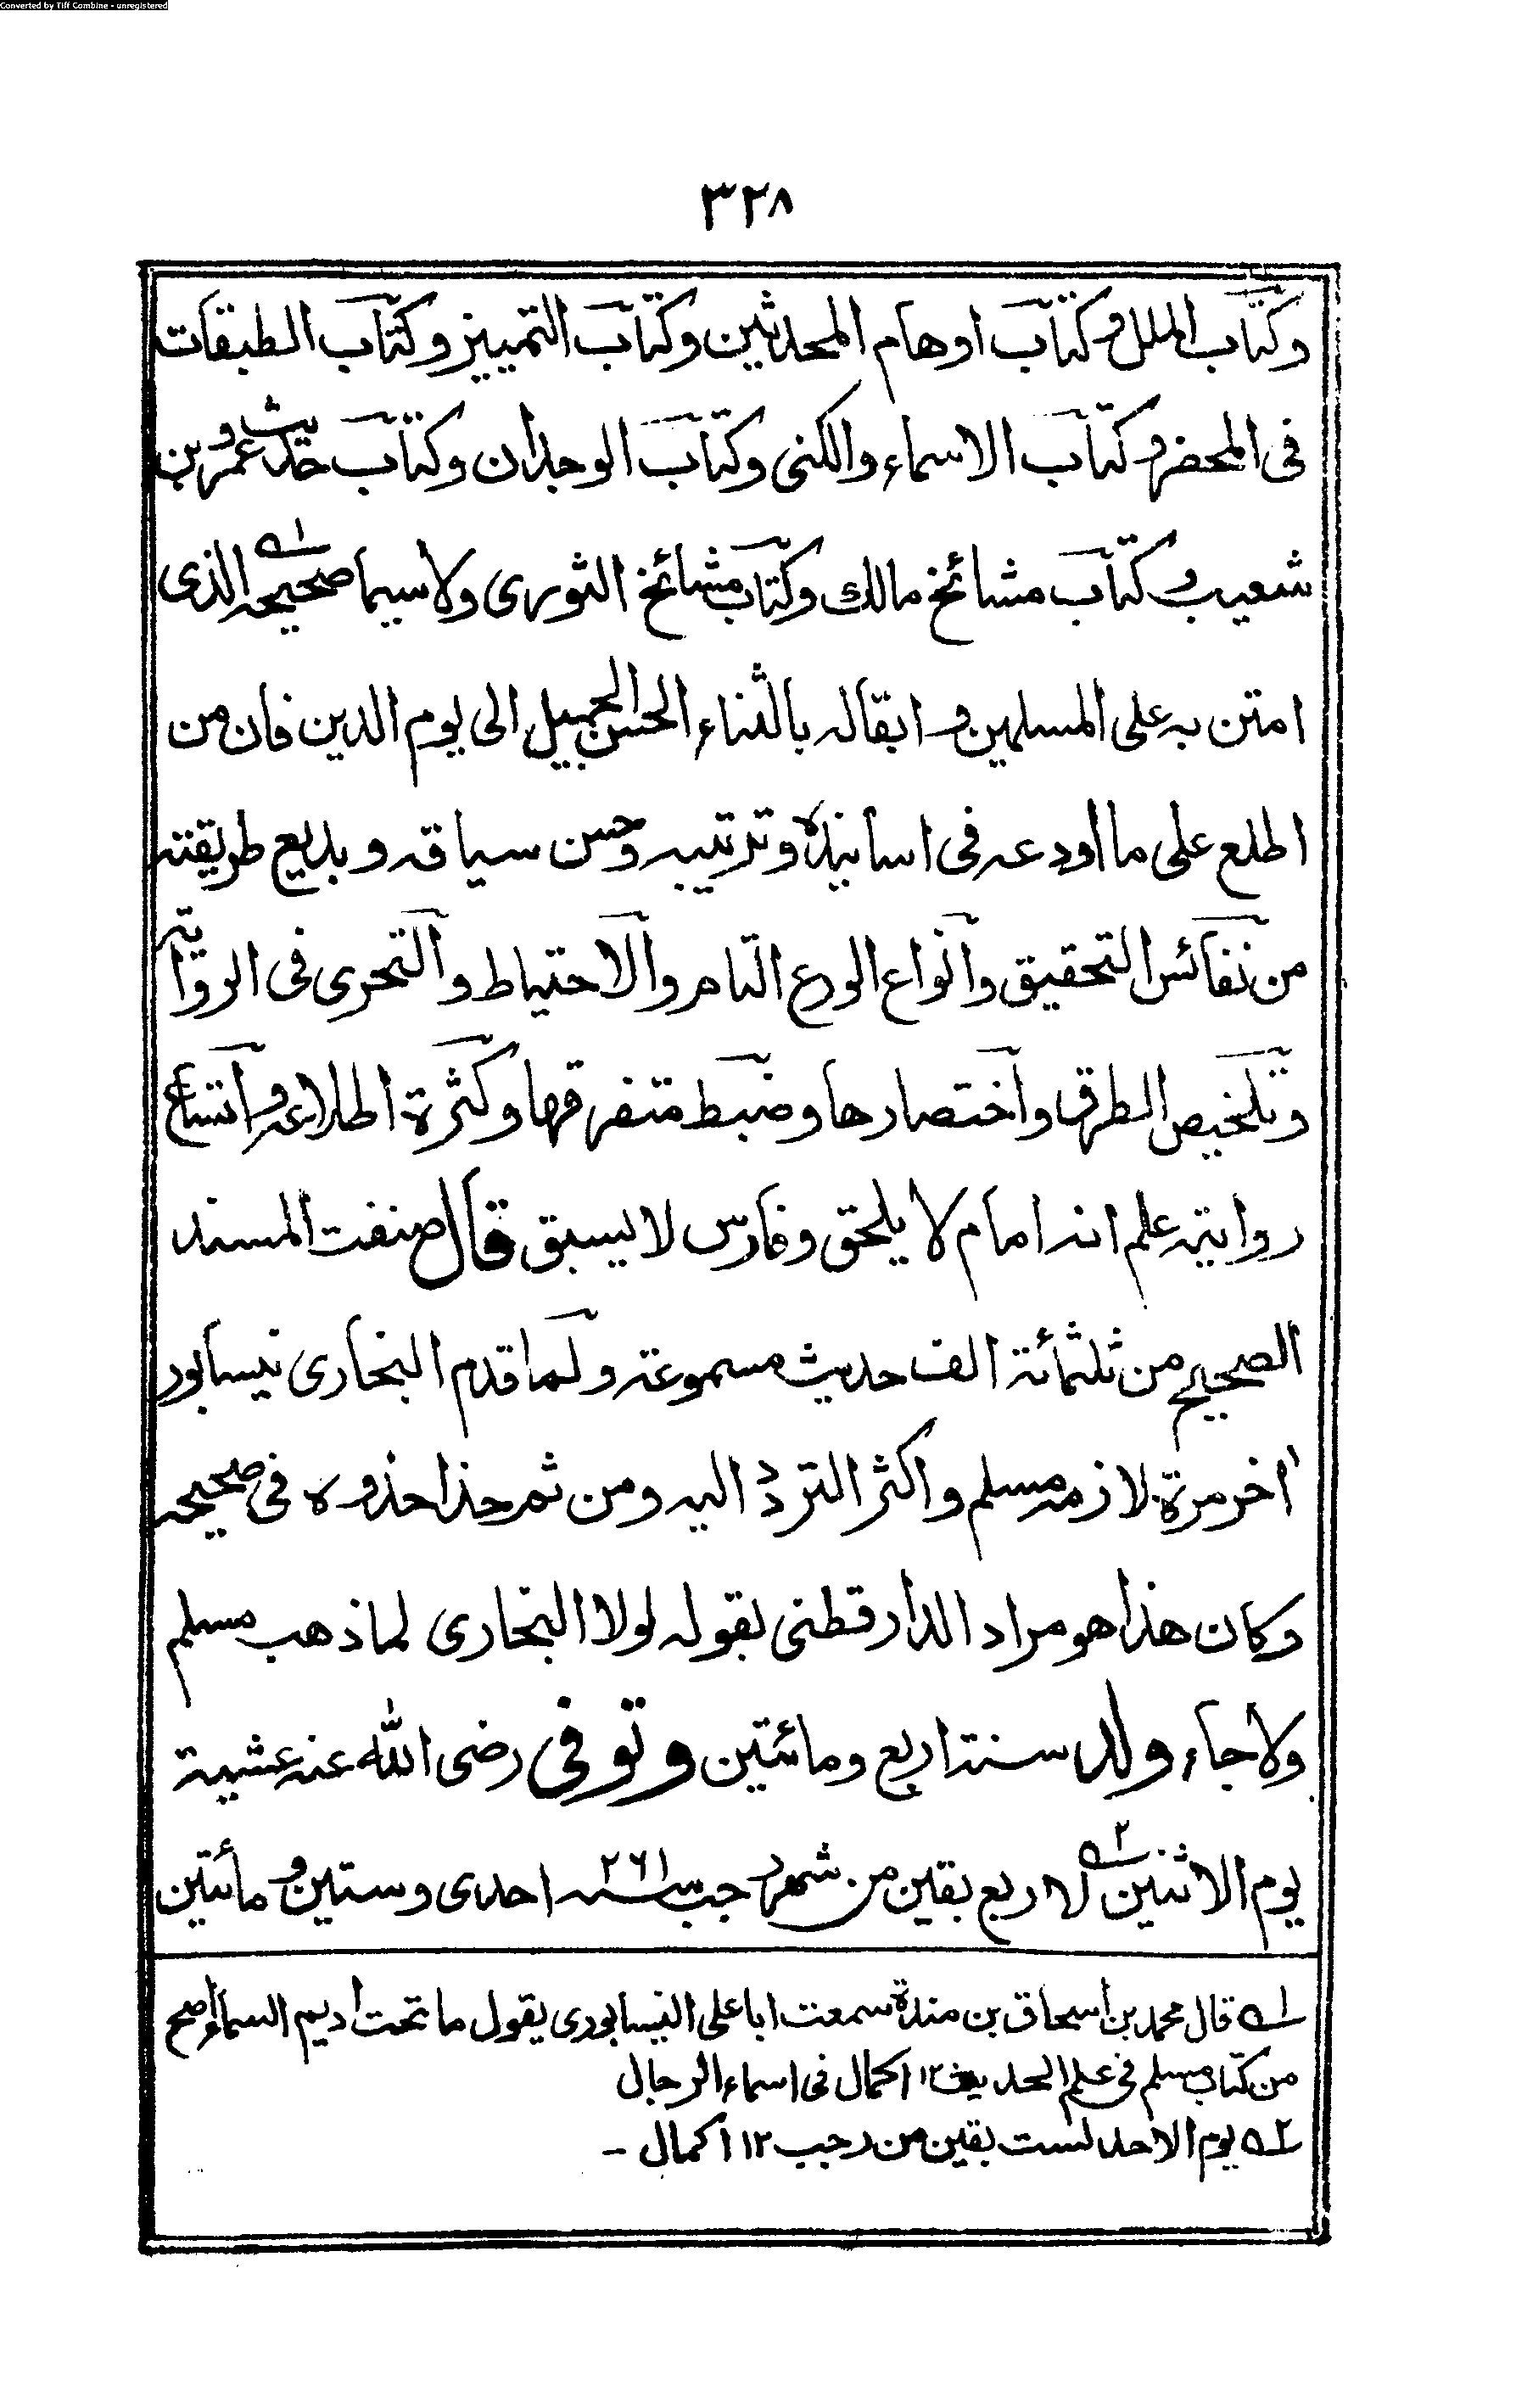 Converted by Tiff Combine - unregistered
٣٢٨
وكتاب الملل وكتاب اوهام المحدثين وكتاب التمييز وكتاب الطبقات
فى المحضر وكتاب الاسماء والكنى وكتاب الوحدان وكتاب حديث عمرو بن
شعيب وكتاب مشائخ مالك وكتاب مشائخ الثورى ولاسيما صحيحه ١ الذى
امتن به على المسلمين و ابقاله بالثناء الحسن الجميل الى يوم الدين فان من
اطلع على ما اودعه فى اسانيده وترتيبه وحسن سياقه و بديع طريقته
من نفائس التحقيق وانواع الورع التام والاحتياط والتحرى فى الرواية
وتلخيص الطرق واختصارها وضبط متفرقها وكثرة اطلاعه واتساع
روايته علم انه امام لا يلحق وفارس لا يسبق قال صنفت المسند
الصحيح من ثلثمائة الف حديث مسموعة ولما قدم البخارى نيسابور
اٰخر مرة لازمه مسلم واكثر التردد اليه ومن ثم حذا حذوه فى صحيحه
وكان هذا هو مراد الدارقطنى بقوله لولا البخارى لما ذهب مسلم
ولا جاء ولد سنة اربع ومائتين وتوفى رضى الله عنه عشية
يوم الاثنين ٢ لاربع بقين من شهر رجب سنه ٢٦١ احدى وستين ومائتين
١ قال محمد بن اسحاق بن مندة سمعت ابا على النيسابورى يقول ما تحت اديم السماء اصح
من كتاب مسلم فى علم الحديث ١٢ اكمال فى اسماء الرجال
٢ يوم الاحد لست بقين من رجب ١٢ اكمال –